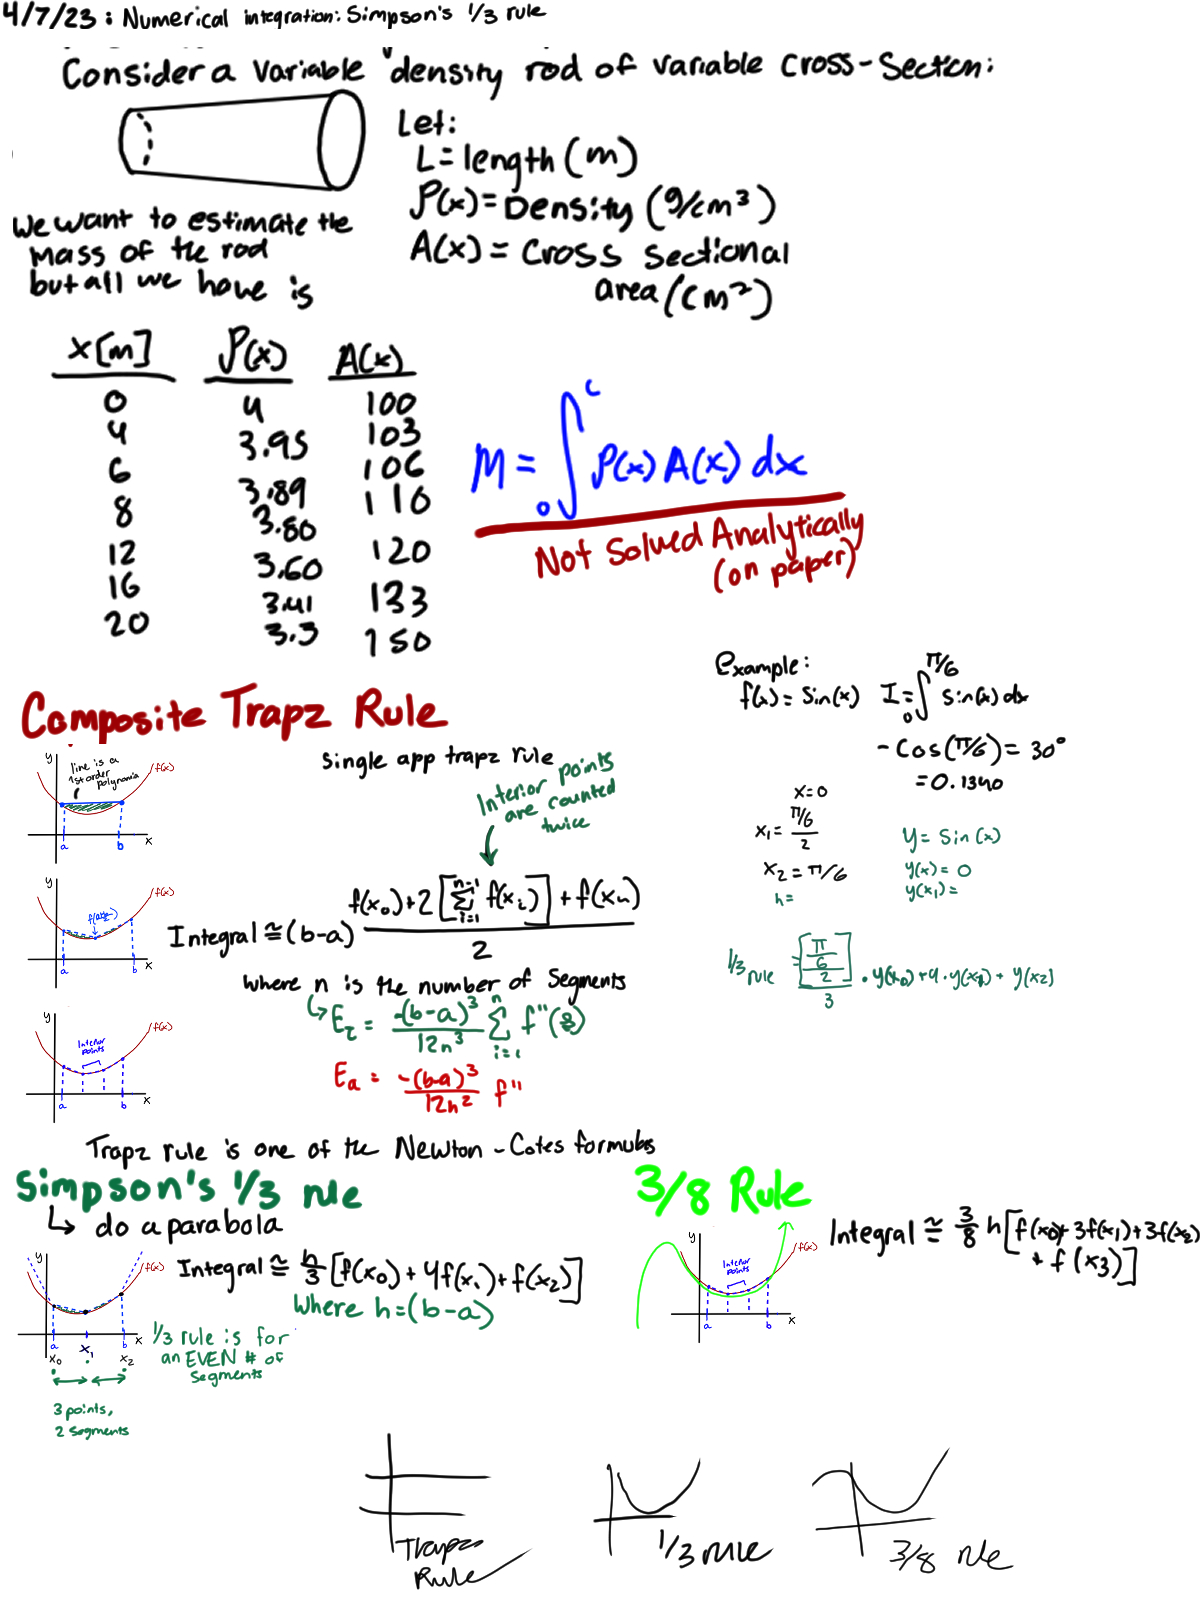 4/7/23: Numerical integration: Simpson's 1/3 rule
Consider a variable density rod of variable cross-section:
Let:
L = length (m)
ρ(x) = Density (g/cm³)
A(x) = Cross sectional
area (cm²)
We want to estimate the
mass of the rod
but all we have is
x[m] ρ(x) A(x)
0 4 100
4 3.95 103
6 3.89 106
8 3.80 110
12 3.60 120
16 3.41 133
20 3.3 150
M = ∫₀ᴸ ρ(x) A(x) dx
Not Solved Analytically
(on paper)
Example:
f(x) = Sin(x) I = ∫₀^π/6 Sin(x) dx
-Cos(π/6) = 30°
= 0.1340
x=0
x₁ = π/6 / 2
x₂ = π/6
h=
y = Sin(x)
y(x) = 0
y(x₁) =
1/3 rule = [π/6 / 2] / 3 · y(x₀) + 4·y(x₁) + y(x₂)
Composite Trapz Rule
line is a
1st order
polynomial
y f(x) a b x
single app trapz rule
Interior points
are counted
twice
y f(x) a b x
Integral ≅ (b-a) f(x₀) + 2[Σ i=1 n-1 f(xᵢ)] + f(xₙ) / 2
where n is the number of Segments
↳ Eₜ = -(b-a)³ / 12n³ Σ i=1 n f''(ξ)
Eₐ = -(b-a)³ / 12n² f''
y f(x) Interior points a b x
Trapz rule is one of the Newton-Cotes formulas
Simpson's 1/3 rule
↳ do a parabola
Integral ≅ h/3 [f(x₀) + 4f(x₁) + f(x₂)]
Where h = (b-a)
y f(x) a b x
x₀ x₁ x₂
1/3 rule is for
an EVEN # of
segments
3 points,
2 segments
3/8 Rule
Integral ≅ 3/8 h [f(x₀) + 3f(x₁) + 3f(x₂)
+ f(x₃)]
y f(x) Interior points a b x
Trapz
Rule
1/3 rule
3/8 rule